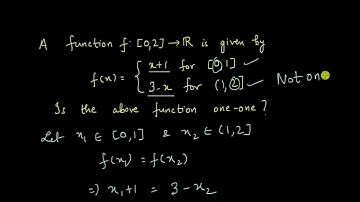 A function f: [0,2] → ℝ is given by
f(x) = { x+1 for [0,1] ✓
3-x for (1,2] ✓
Not on
Is the above function one-one?
Let x₁ ∈ [0,1] & x₂ ∈ (1,2]
f(x₁) = f(x₂)
⇒ x₁+1 = 3-x₂